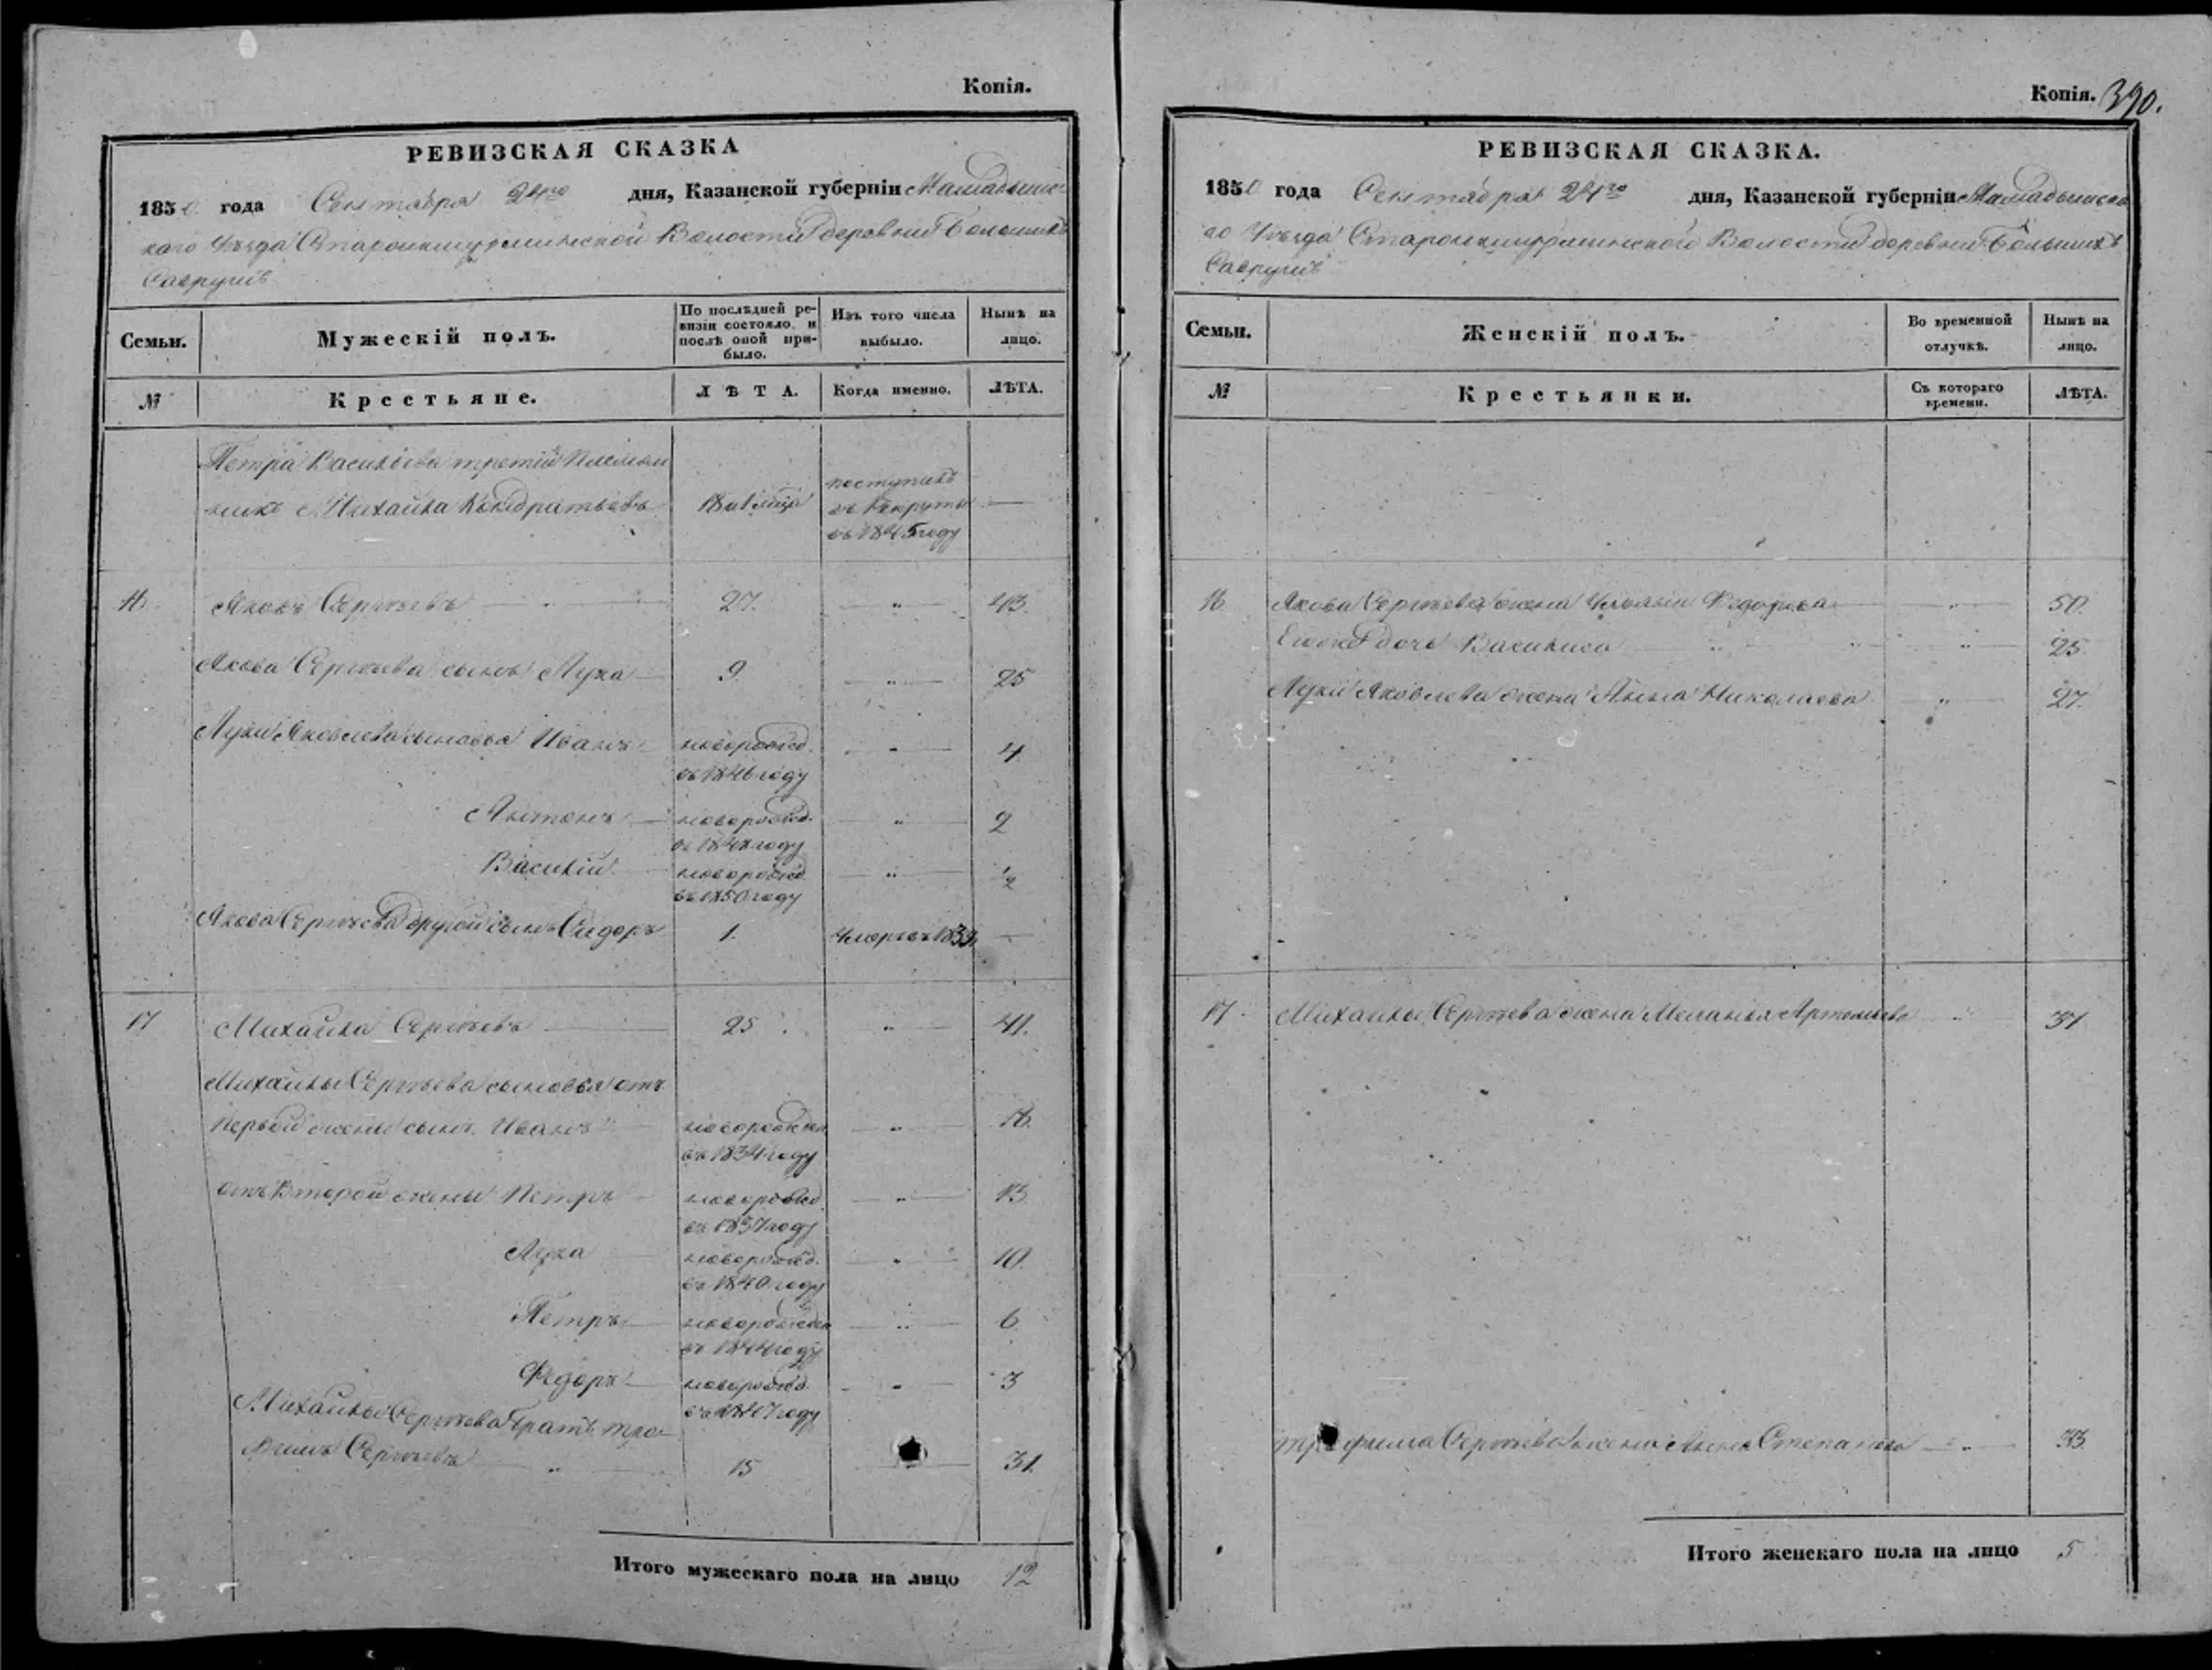 Копія.
РЕВИЗСКАЯ СКАЗКА
1850 года Сентября 24го дня, Казанской губерніи Мамадышс
каго Уѣзда Волости деревни Большихъ
Савруш
Семьи. Мужескій полъ. По послѣдней ре-визіи состояло, и послѣ оной при-было. Изъ того числа выбыло. Нынѣ на лицо.
№ Крестьяне. ЛѢТА. Когда именно. ЛѢТА.
Петра Васильева третій племян
никъ Михайла Кондратьевъ поступилъ въ рекруты въ 1845 году
16. Яковъ Сергѣевъ 27. " 43.
Якова Сергѣева сынъ Лука 9. " 25
Луки Яковлева сыновья Иванъ новорожд. " 4
въ 1846 году
Антонъ новорожд. " 2
въ 1848 году
Василій новорожд. " ½
въ 1850 году
Якова Сергѣева другой сынъ Сидоръ 1. Умеръ въ
17 Михайла Сергѣевъ 25 " 41.
Михайлы Сергѣева сыновья отъ
первой жены сынъ Иванъ новорожден " 16.
въ 1834 году
отъ второй жены Петръ новорожд " 13
въ 1837 году
Лука новорожд. " 10.
въ 1840 году
Петръ новорожден " 6
въ 1844 году
Федоръ новорожд " 3
въ 1847 году
Михайлы Сергѣева братъ Тро
фимъ Сергѣевъ " 15 31.
Итого мужескаго пола на лицо 12
Копія. 390.
РЕВИЗСКАЯ СКАЗКА.
1850 года Сентября 24го дня, Казанской губерніи Мамадышска
го Уѣзда Волости деревни Большихъ
Савруш
Семьи. Женскій полъ. Во временной отлучкѣ. Нынѣ на лицо.
№ Крестьянки. Съ котораго времени. ЛѢТА.
16 Якова Сергѣева жена Ульяна Федорова " 50.
Его же дочь Василиса " 25.
Луки Яковлева жена Анна Николаева " 27.
17. Михайлы Сергѣева жена Меланья Артемьева "
Трофима Сергѣева жена Степанова " 33.
Итого женскаго пола на лицо 5